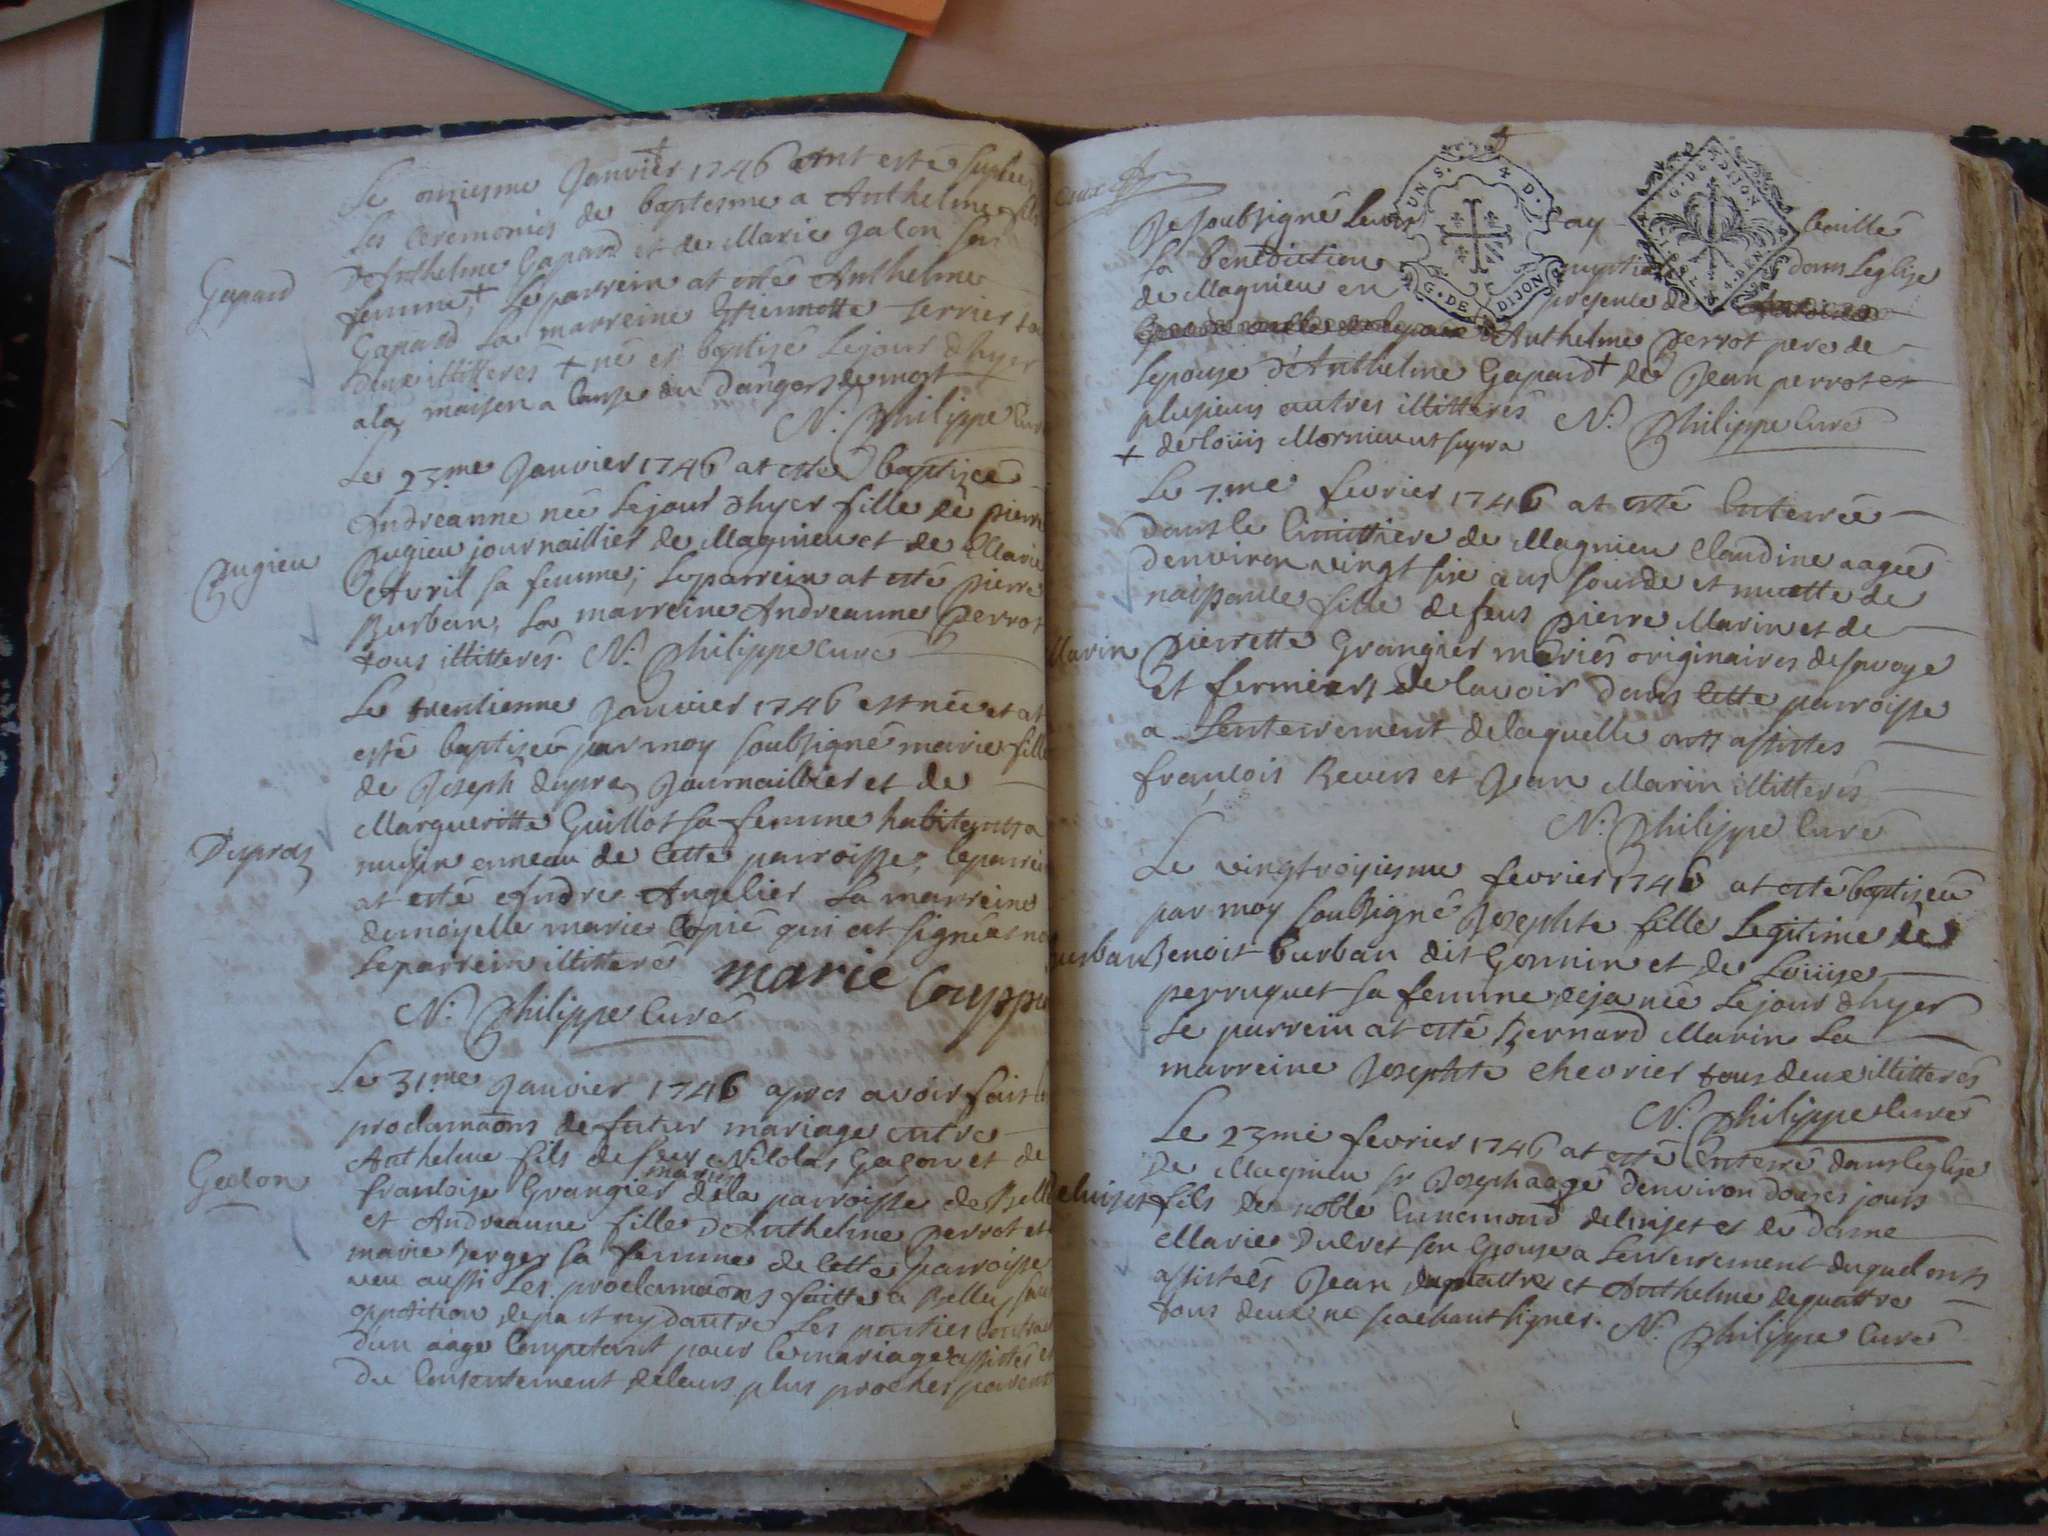 Le onziesme Janvier 1746 ont esté suplée
Les Ceremonies de baptesme a Anthelme fils
d'Anthelme Gapard et de Marie Galon sa
Gapard
femme, + Le parrein at esté Anthelme
Gapard La marreine Estiennette Terrier to
deux illitterés + né et baptizé Lejour d'hyer
a la maison a Cause du dangers de mort
N. Philippe Curé
Le 23.me Janvier 1746 at esté baptizée
Andreanne née Lejour d'hyer fille de pierre
Pugieu
Pugieu journaillier de Magnieu et de Marie
Avril sa femme; Le parrein at esté pierre
Burban, La marreine Andreanne perrot
tous illitterés. N. Philippe Curé
Le trentienne Janvier 1746 est née et at
esté baptizée par moy soubsigné marie fille
de Joseph dupra Journaillier et de
Margueritte Guillot sa femme habitants a
Dupraz
de Cette parroisse, Le parrein
at esté Andre Angelier La marreine
demoiselle marie Copié qui at signée et non
Le parrein illitteré marie Couppie
N. Philippe Curé
Le 31.me Janvier 1746 apres avoir fait le
proclamaons de futur mariage entre
Anthelme fils de feu Nicolas Galon et de
Galon
mariés
francoise Grangier de la parroisse de Belle
et Andreanne fille d'Anthelme perrot et
marie Berger sa femme de Cette parroisse
veu aussi Les proclamaons faitte a Belley, sans
opposition de part ny d'autre Les parties contrac
d'un aage Competant pour Le mariage assistés et
du Consentement de leurs plus proches parents
Je soubsigné Curé ay baillé
La benediction nuptiale dans Leglise
de Magnieu en presence de
d'Anthelme perrot pere de
Lepouse d'Anthelme Gapard + de Jean perrot et
plusieurs autres illitterés N. Philippe Curé
+ de louis Mornieu ut supra
Le 7.me fevrier 1746 at esté Enterrée
dans le Cimittiere de Magnieu Claudine aagée
d'environ vingt six ans sourde et muette de
naissance fille de feus pierre Marin et de
Marin
pierrette Grangier mariés originaires de savoye
et fermiers de lavoir dans Cette parroisse
a Lenterrement de laquelle onts assistés
francois Revers et Jean Marin illitterés
N. Philippe Curé
Le vingtroisiesme fevrier 1746 at esté baptizée
par moy soubsigné Josephte fille Legitime de
Burban
Benoit burban dit Gonnin et de Louise
perruquet sa femme deja née Lejour d'hyer
Le parrein at esté Bernard Marin La
marreine Josephte Chevrier tous deux illitterés
N. Philippe Curé
Le 23me fevrier 1746 at esté Enterré dans leglise
De Magnieu sr Joseph aagé d'environ douzes jours
fils de noble Ennemond delu et de Dame
Marie Dulvet son Epouse a Lenterrement duquel onts
assistés Jean et Anthelme dequattre
tous deux ne scachant signer. N. Philippe Curé
G. DE DIJON
G. DE DIJON